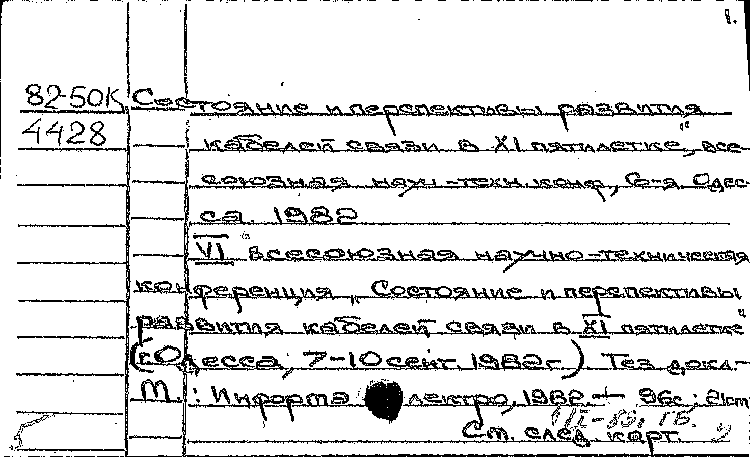 1.
82-50К Состояние и перспективы развития
4428 кабелей связи в XI пятилетке", все-
союзная науч.-техн. конф., 6-я. Одес-
са. 1982
VI всесоюзная научно-техническая
конференция „Состояние и перспективы
развития кабелей связи в XI пятилетке"
(г. Одесса, 7-10 сент. 1982 г.) Тез. докл.-
М.: Информэлектро, 1982.- 96с.; 21см
См. след. карт.